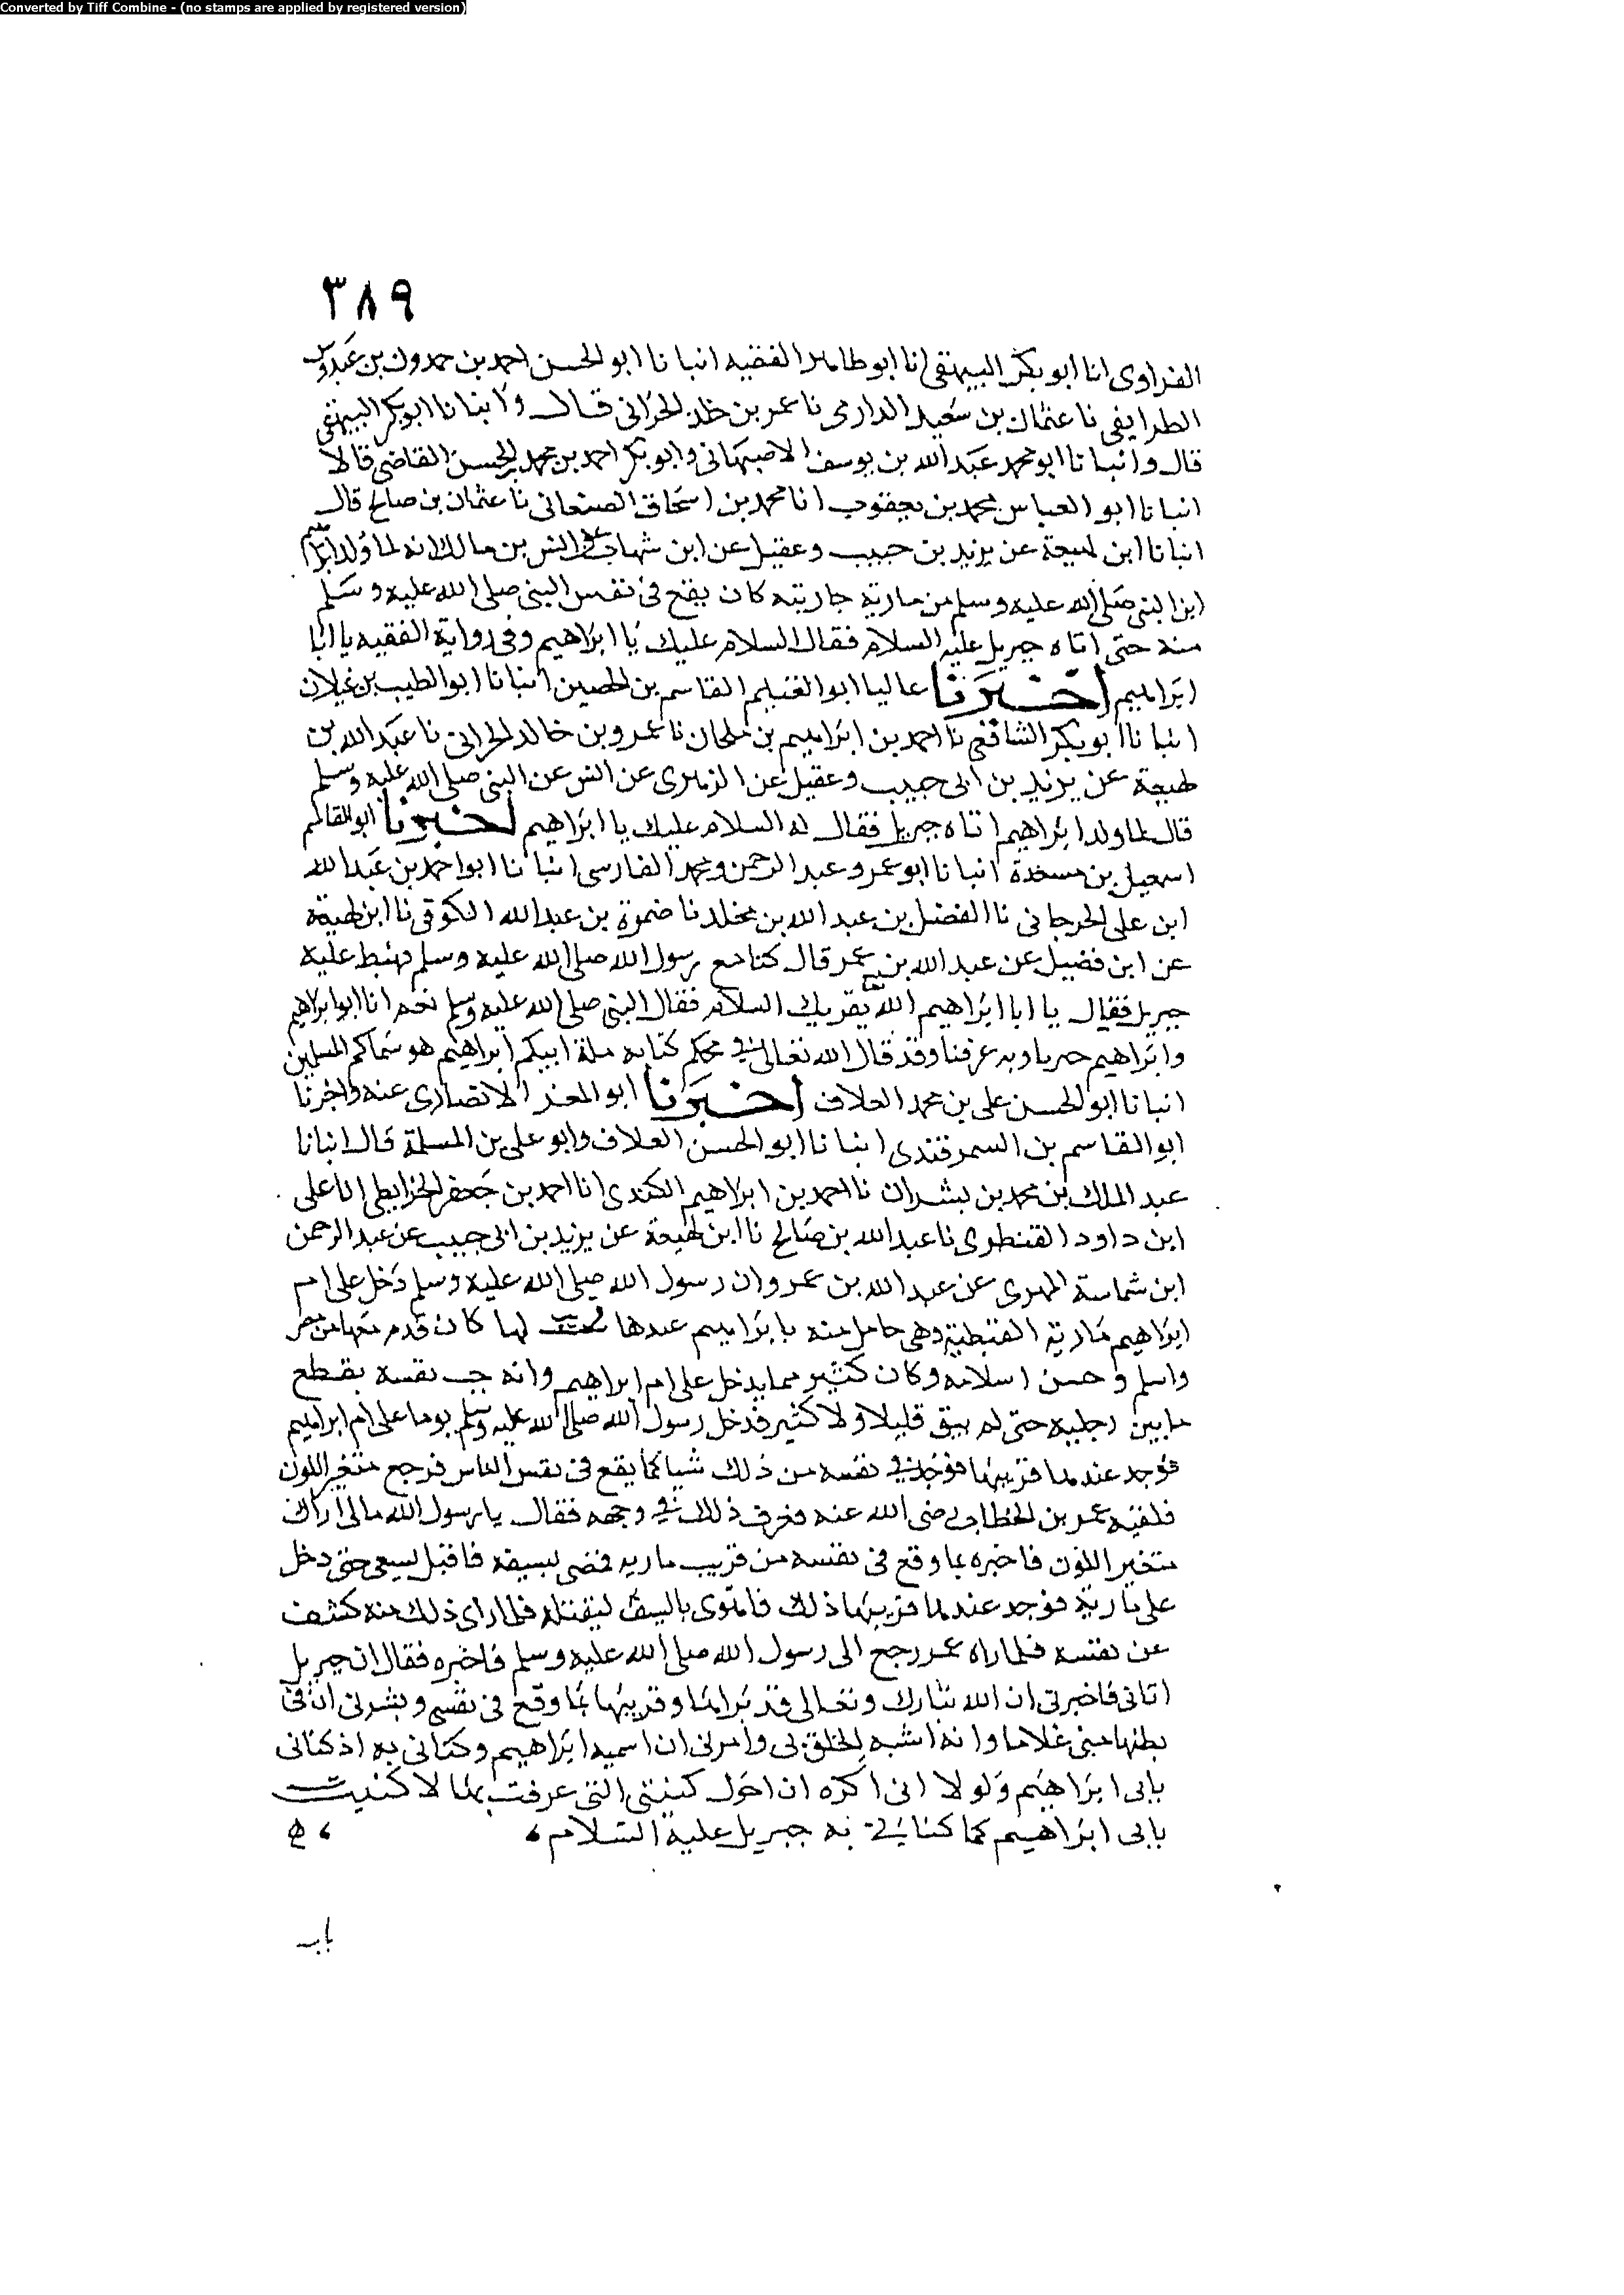 Converted by Tiff Combine - (no stamps are applied by registered version)
٣٨٩
الفراوى انا ابو بكر البيهقى انا ابو طاهر الفقيه انبانا ابو الحسن احمد بن حمدون بن عبدوس
الطرايفى نا عثمان بن سعيد الدارمى نا عمر بن خلد الحرانى قال وانبانا ابو بكر البيهقى
قال وانبانا ابو محمد عبد الله بن يوسف الاصبهانى وابو بكر احمد بن محمد بن الحسن القاضى قالا
انبانا ابو العباس محمد بن يعقوب انا محمد بن اسحاق الصنعانى نا عثمان بن صالح قال
انبانا ابن لهيعة عن يزيد بن حبيب وعقيل عن ابن شهاب عن انس بن مالك انه لما ولد ابراهيم
ابن النبى صلى الله عليه وسلم من مارية جاريته كان يقع فى نفس النبى صلى الله عليه وسلم
منه حتى اتاه جبريل عليه السلام فقال السلام عليك يا ابراهيم وفى رواية الفقيه يا ابا
ابراهيم اخبرنا عاليا ابو القاسم بن الحصين انبانا ابو الطيب بن غيلان
انبانا ابو بكر الشافعى نا احمد بن ابراهيم بن ملحان نا عمرو بن خالد الحرانى نا عبد الله بن
لهيعة عن يزيد بن ابى حبيب وعقيل عن الزهرى عن انس عن النبى صلى الله عليه وسلم
قال لما ولد ابراهيم اتاه جبريل فقال له السلام عليك يا ابراهيم اخبرنا ابو القاسم
اسمعيل بن مسعدة انبانا ابو عمرو عبد الرحمن ومحمد الفارسى انبانا ابو احمد بن عبد الله
ابن على الجرجانى نا الفضل بن عبد الله بن مخلد نا ضمرة بن عبد الله الكوفى نا ابن لهيعة
عن ابن فضيل عن عبد الله بن عمر قال كنا مع رسول الله صلى الله عليه وسلم فهبط عليه
جبريل فقال يا ابا ابراهيم الله يقريك السلام فقال النبى صلى الله عليه وسلم نعم انا ابو ابراهيم
وابراهيم وبه عرفنا وقد قال الله تعالى فى محكم كتابه ملة ابيكم ابراهيم هو سماكم المسلمين
انبانا ابو الحسن على بن محمد العلاف اخبرنا ابو المعمر الانصارى عنه واخبرنا
ابو القاسم بن السمرقندى انبانا ابو الحسن العلاف وابو على بن المسلمة قال انبانا
عبد الملك بن محمد بن بشران نا احمد بن ابراهيم الكندى انا احمد بن جعفر الخرايطى انا على
ابن داود القنطرى نا عبد الله بن صالح نا ابن لهيعة عن يزيد بن ابى حبيب عن عبد الرحمن
ابن شماسة المهرى عن عبد الله بن عمرو ان رسول الله صلى الله عليه وسلم دخل على ام
ابراهيم مارية القبطية وهى حامل منه بابراهيم عندها لها كان قدم معها من مصر
واسلم وحسن اسلامه وكان كثير مما يدخل على ام ابراهيم وانه جب نفسه بقطع
ما بين رجليه حتى لم يبق قليلا ولا كثير فدخل رسول الله صلى الله عليه وسلم يوما على ام ابراهيم
فوجد عندها قريبها فوجد فى نفسه من ذلك شيا كما يقع فى نفس الناس فرجع متغير اللون
فلقيه عمر بن الخطاب رضى الله عنه فعرف ذلك فى وجهه فقال يا رسول الله مالى اراك
متغير اللون فاخبره بما وقع فى نفسه من قريب ماريه فمضى بسيفه فاقبل يسعى حتى دخل
على مارية فوجد عندها قريبها ذلك فاهوى بالسيف ليقتله فلما راى ذلك منه كشف
عن نفسه فلما راه عمر رجع الى رسول الله صلى الله عليه وسلم فاخبره فقال ان جبريل
اتانى فاخبرنى ان الله تبارك وتعالى قد براها وقريبها مما وقع فى نفسى وبشرنى ان فى
بطنها منى غلاما وانه اشبه الخلق بى وامرنى ان اسميه ابراهيم وكنانى به اذ كنانى
بابى ابراهيم ولولا انى اكره ان احول كنيتى التى عرفت بها لاكنيت
بابى ابراهيم كما كنانى به جبريل عليه السلام
باب